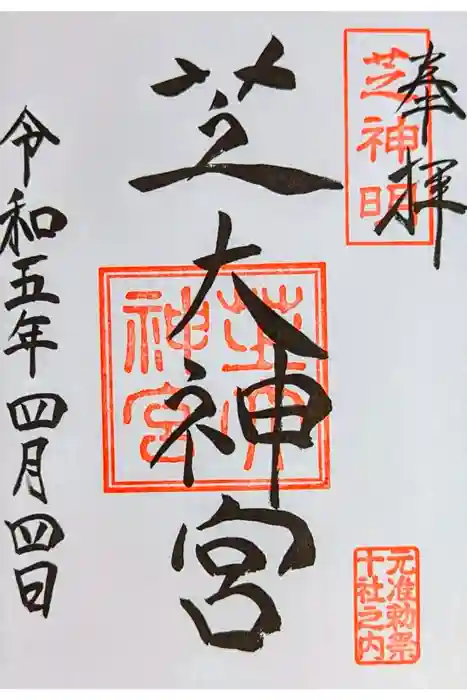 奉拝
芝神明
芝大神宮
芝大
神宮
元准勅祭
十社之内
令和五年四月四日